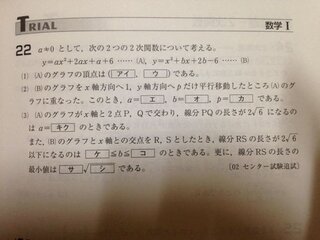 TRIAL 数学Ⅰ
22 a≠0 として,次の2つの2次関数について考える。
y=ax²+2ax+a+6 …… (A), y=x²+bx+2b−6 …… (B)
(1) (A)のグラフの頂点は( アイ , ウ )である。
(2) (B)のグラフを x 軸方向へ 1, y 軸方向へ p だけ平行移動したところ (A) のグ
ラフに重なった。このとき, a= エ , b= オ , p= カ である。
(3) (A)のグラフが x 軸と2点 P, Q で交わり,線分 PQ の長さが 2√6 になるの
は a= キク のときである。
また, (B)のグラフと x 軸との交点を R, S としたとき,線分 RS の長さが 2√6
以下になるのは ケ ≦b≦ コ のときである。更に,線分 RS の長さの
最小値は サ √ シ である。 (02 センター試験追試)